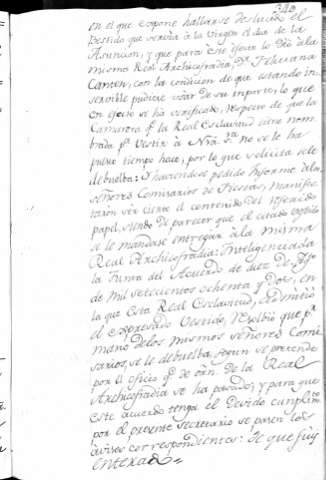 en el que expone hallarse deslucido el
Vestido que servía a la Virgen el dia de la
Asuncion, y que para este efecto lo dio a la
misma Real Archicofradia, Dª Mariana
Carmen, con la condicion de que estando in-
servible pudiese usar de su importe, lo que
en efecto se ha verificado, respecto de que la
Camarera qᵉ la Real Esclavitud tiene nom-
brada pª vestir a Nrâ. Srâ. no se le ha
puesto tiempo hace; por lo que solicita se le
debuelba: Y haviendose pedido Informe a los
señores Comisarios de Fiestas, manifes-
taron ser cierto el contenido del referido
papel, siendo de parecer que el citado vestido
se le mandase entregar a la misma
Real Archicofradia: Inteligenciada
la Junta del Acuerdo de diez de
de Mil setecientos ochenta y dos, en
la que esta Real Esclavitud, admitió
el expresado Vestido, resolbió que pʳ
mano de los mismos señores Comi-
sarios, se le debuelba segun se pretende
por el oficio qᵉ de orñ. de la Real
Archicofradia se ha pasado; y para que
este acuerdo tenga el devido cumplimᵗᵒ
por el presente secretario se pasen los
avisos correspondientes: De que fuy
enterado =